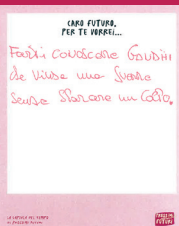 CARO FUTURO,
PER TE VORREI...
Farti conoscere Gandhi
che vinse una guerra
senza sparare un colpo.
LA CAPSULA DEL TEMPO